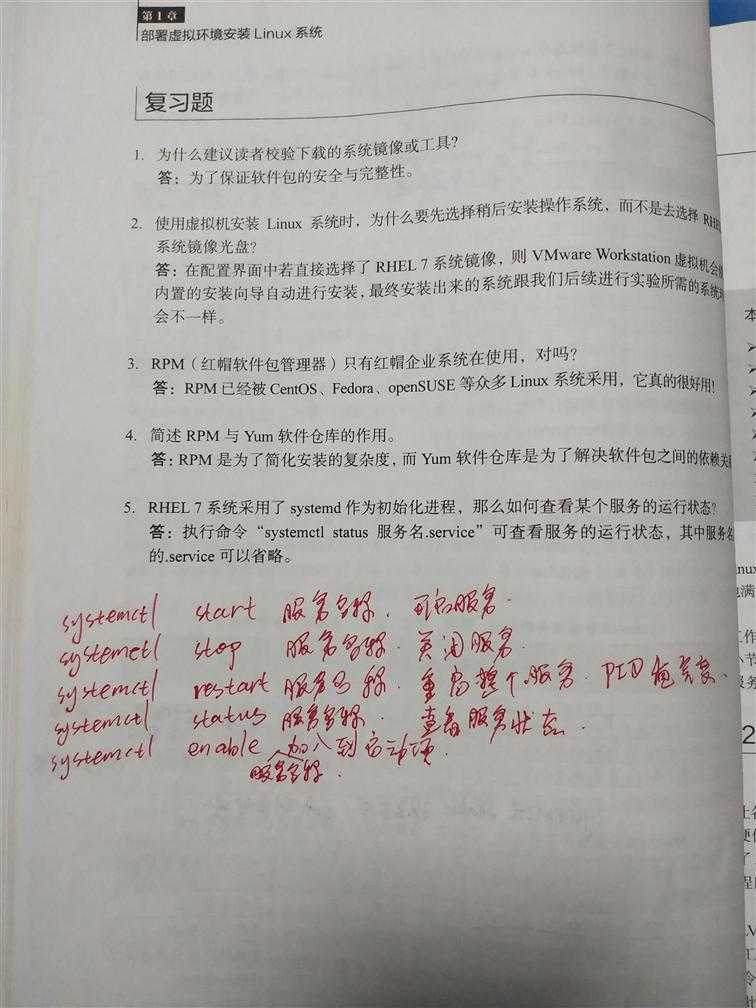 第1章
部署虚拟环境安装 Linux 系统
复习题
1. 为什么建议读者校验下载的系统镜像或工具?
答：为了保证软件包的安全与完整性。
2. 使用虚拟机安装 Linux 系统时，为什么要先选择稍后安装操作系统，而不是去选择 RHE
系统镜像光盘?
答：在配置界面中若直接选择了 RHEL 7 系统镜像，则 VMware Workstation 虚拟机会
内置的安装向导自动进行安装，最终安装出来的系统跟我们后续进行实验所需的系统
会不一样。
3. RPM（红帽软件包管理器）只有红帽企业系统在使用，对吗?
答：RPM 已经被 CentOS、Fedora、openSUSE 等众多 Linux 系统采用，它真的很好用!
4. 简述 RPM 与 Yum 软件仓库的作用。
答：RPM 是为了简化安装的复杂度，而 Yum 软件仓库是为了解决软件包之间的依赖关
5. RHEL 7 系统采用了 systemd 作为初始化进程，那么如何查看某个服务的运行状态?
答：执行命令“systemctl status 服务名.service”可查看服务的运行状态，其中服务名
的.service 可以省略。
systemctl start 服务名称. 服务.
systemctl stop 服务名称. 关闭服务.
systemctl restart 服务名称. 重启整个服务. PID
systemctl status 服务名称. 查看服务状态.
systemctl enable 加入到启动项.
服务名称.
本
2